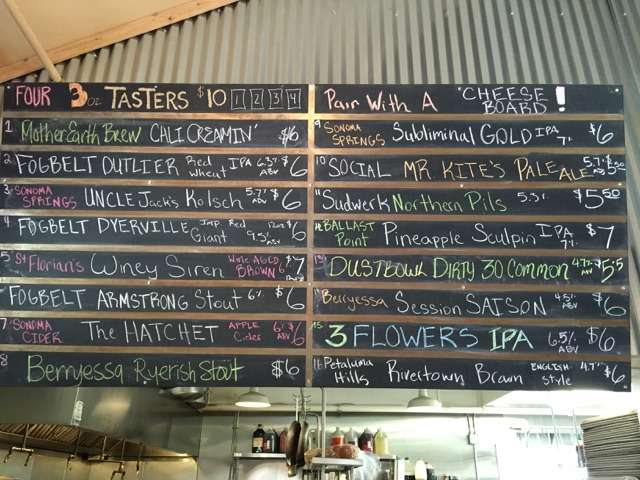 FOUR 3 oz TASTERS $10 1 2 3 4
1 MotherEarth Brew CALI CREAMIN' $6
2 FOGBELT OUTLIER Red wheat IPA 6.3% ABV $6
3 SONOMA SPRINGS UNCLE Jack's Kolsch 5.7% ABV $6
4 FOGBELT DYERVILLE Imp. Red Giant 9.5% ABV $6
5 St Florian's Winey Siren Wine AGED BROWN $7
FOGBELT ARMSTRONG Stout 6% $6
7 SONOMA CIDER The HATCHET APPLE Cider 6% ABV $6
8 Berryessa Ryerish Stout $6
Pair With A CHEESE BOARD!
9 SONOMA SPRINGS Subliminal GOLD IPA 7% $6
10 SOCIAL MR. KITE'S PALE ALE 5.7% ABV
11 Sudwerk Northern Pils 5.3% $5.50
12 BALLAST Point Pineapple Sculpin IPA 7% $7
13 DUSTBOWL DIRTY 30 Common 4.7% ABV $5.5
Berryessa Session SAISON 4.5% ABV $6
15 3 FLOWERS IPA 6.5% ABV $6
16 Petaluma Hills Rivertown Brown ENGLISH style 4.7% $6